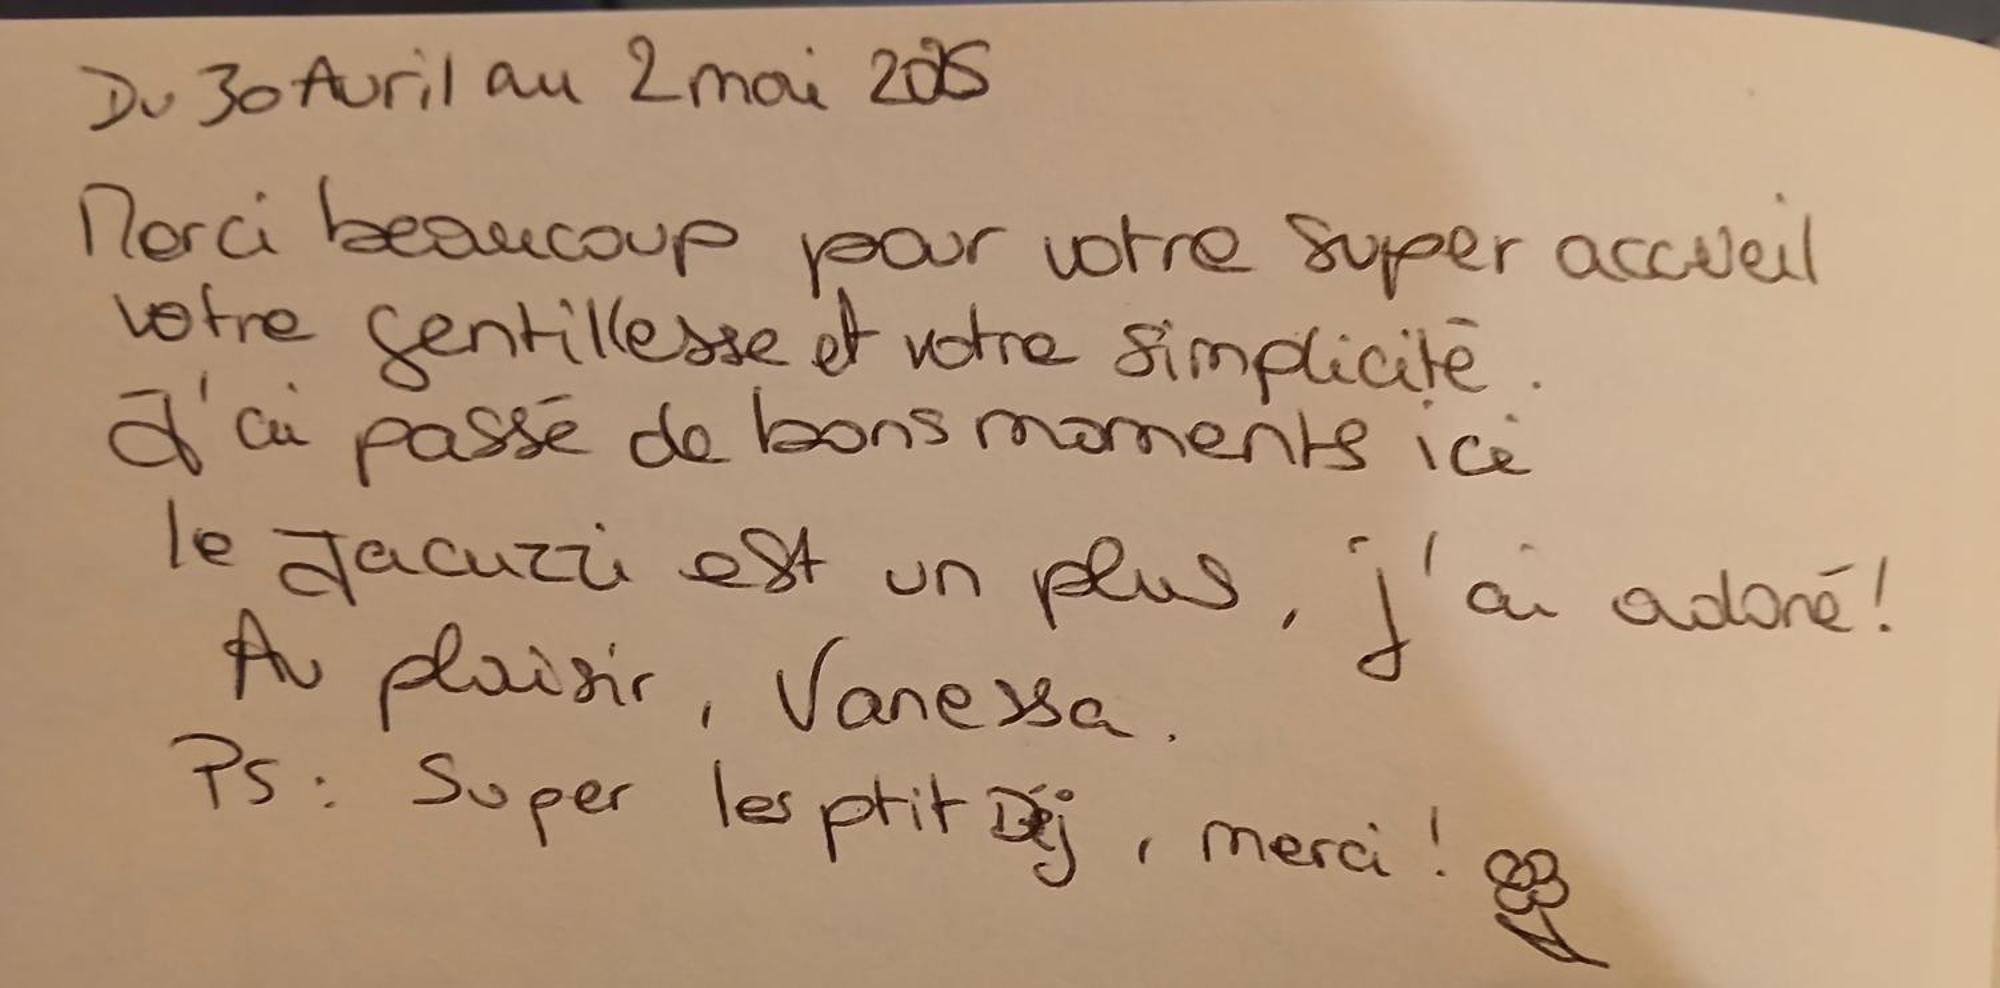 Du 30 Avril au 2 mai 2025
Merci beaucoup pour votre super accueil
votre gentillesse et votre simplicité.
J'ai passé de bons moments ici
le Jacuzzi est un plus, j'ai adoré!
Au plaisir, Vanessa.
PS: Super les ptit Déj, merci!